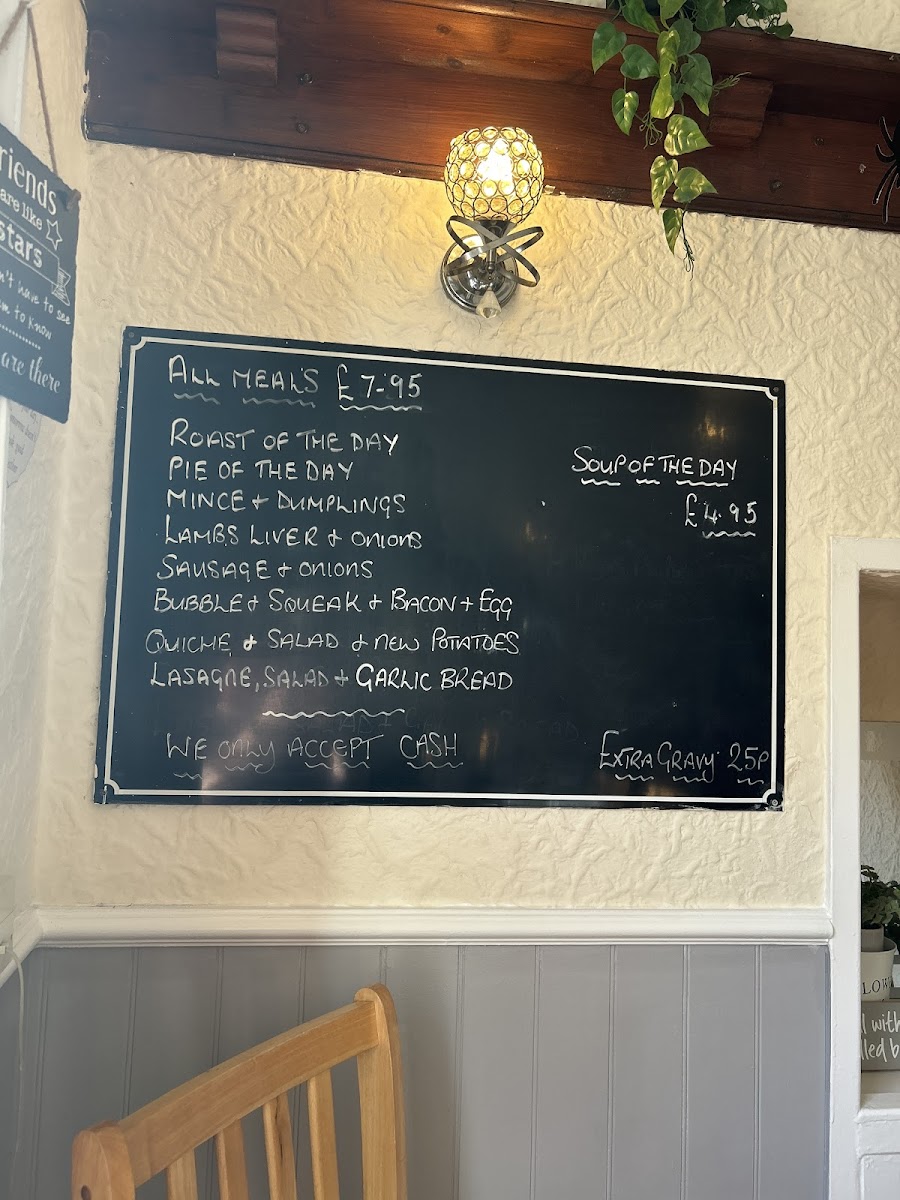 riends
are like
stars
n't have to see
em to know
are there
ALL MEAL'S £7-95
ROAST OF THE DAY
PIE OF THE DAY
MINCE + DUMPLINGS
LAMBS LIVER + ONIONS
SAUSAGE + ONIONS
BUBBLE + SQUEAK + BACON + EGG
QUICHE + SALAD + NEW POTATOES
LASAGNE, SALAD + GARLIC BREAD
WE ONLY ACCEPT CASH
SOUP OF THE DAY
£4.95
EXTRA GRAVY 25P
LOW
l with
lled b